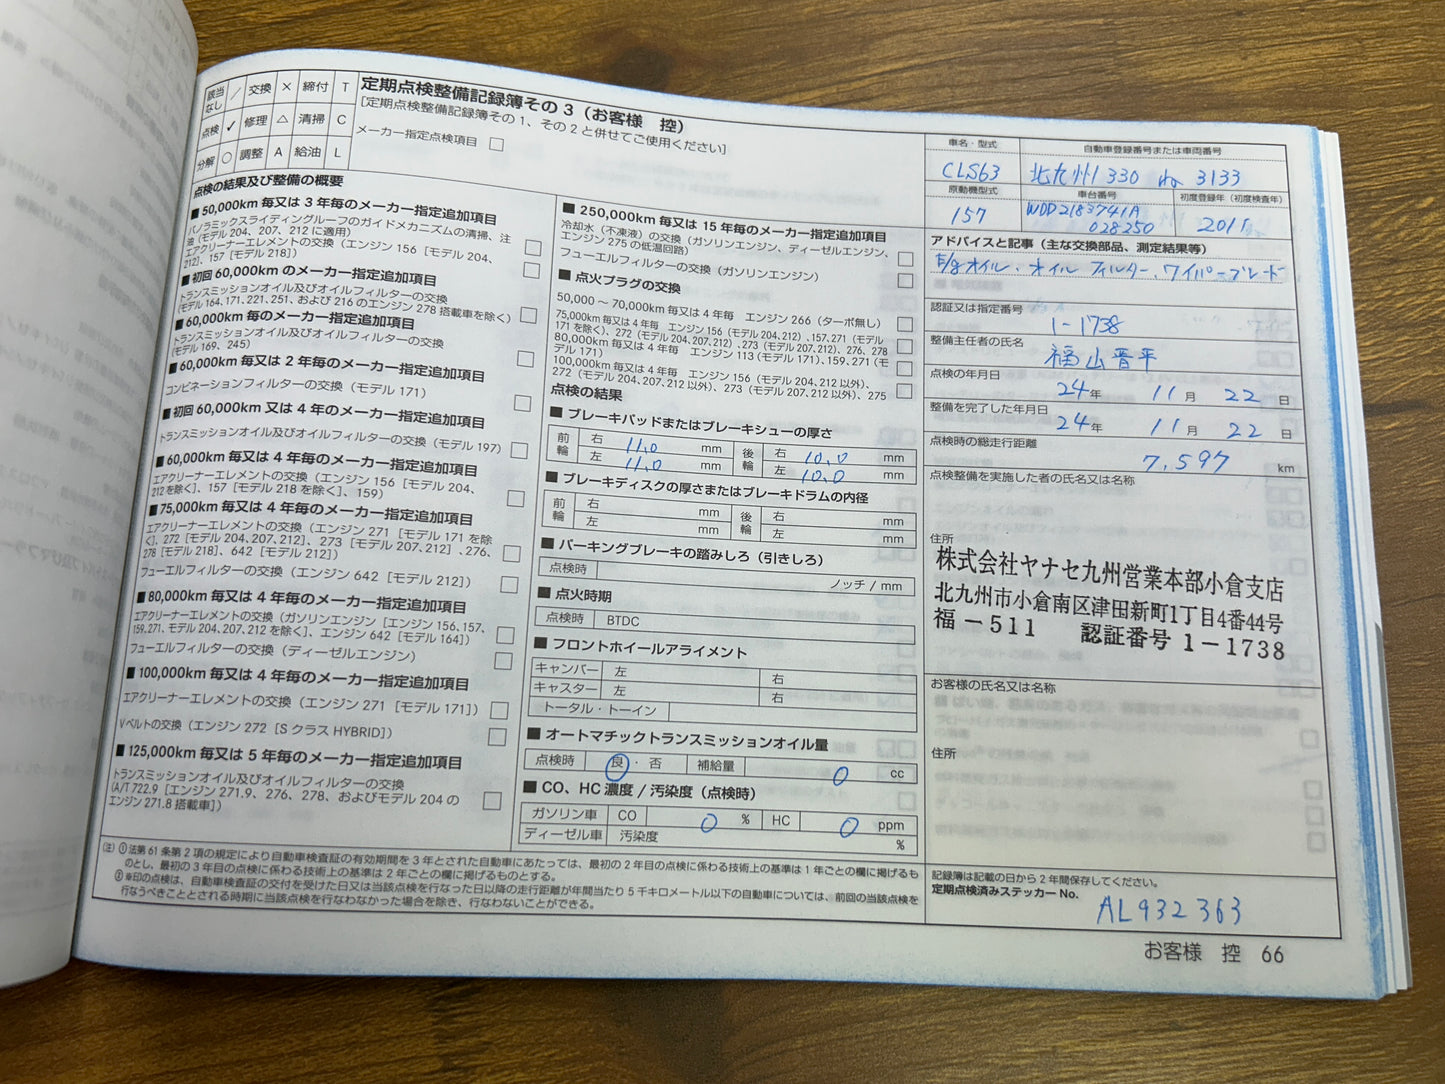 該当なし ／ 交換 × 締付 T
点検 ✓ 修理 △ 清掃 C
分解 ○ 調整 A 給油 L
定期点検整備記録簿その3（お客様 控）
[定期点検整備記録簿その1、その2と併せてご使用ください]
メーカー指定点検項目 □
点検の結果及び整備の概要
■ 50,000km 毎又は 3 年毎のメーカー指定追加項目
パノラミックスライディングルーフのガイドメカニズムの清掃、注
油（モデル 204、207、212 に適用）
エアクリーナーエレメントの交換（エンジン 156［モデル 204、
212］、157［モデル 218］）
■ 初回 60,000km のメーカー指定追加項目
トランスミッションオイル及びオイルフィルターの交換
（モデル 164, 171, 221, 251、および 216 のエンジン 278 搭載車を除く）
■ 60,000km 毎のメーカー指定追加項目
トランスミッションオイル及びオイルフィルターの交換
（モデル 169、245）
■ 60,000km 毎又は 2 年毎のメーカー指定追加項目
コンビネーションフィルターの交換（モデル 171）
■ 初回 60,000km 又は 4 年のメーカー指定追加項目
トランスミッションオイル及びオイルフィルターの交換（モデル 197）
■ 60,000km 毎又は 4 年毎のメーカー指定追加項目
エアクリーナーエレメントの交換（エンジン 156［モデル 204、
212を除く］、157［モデル 218を除く］、159）
■ 75,000km 毎又は 4 年毎のメーカー指定追加項目
エアクリーナーエレメントの交換（エンジン 271［モデル 171 を除
く］、272［モデル 204、207、212］、273［モデル 207、212］、276、
278［モデル 218］、642［モデル 212］）
フューエルフィルターの交換（エンジン 642［モデル 212］）
■ 80,000km 毎又は 4 年毎のメーカー指定追加項目
エアクリーナーエレメントの交換（ガソリンエンジン［エンジン 156、157、
159、271、モデル 204、207、212を除く］、エンジン 642［モデル 164］）
フューエルフィルターの交換（ディーゼルエンジン）
■ 100,000km 毎又は 4 年毎のメーカー指定追加項目
エアクリーナーエレメントの交換（エンジン 271［モデル 171］）
Vベルトの交換（エンジン 272［S クラス HYBRID］）
■ 125,000km 毎又は 5 年毎のメーカー指定追加項目
トランスミッションオイル及びオイルフィルターの交換
（A/T 722.9［エンジン 271.9、276、278、およびモデル 204 の
エンジン 271.8 搭載車］）
■ 250,000km 毎又は 15 年毎のメーカー指定追加項目
冷却水（不凍液）の交換（ガソリンエンジン、ディーゼルエンジン、
エンジン 275 の低温回路）
フューエルフィルターの交換（ガソリンエンジン）
■ 点火プラグの交換
50,000 ～ 70,000km 毎又は 4 年毎 エンジン 266（ターボ無し）
75,000km 毎又は 4 年毎 エンジン 156（モデル 204、212）、157、271（モデル
171 を除く）、272（モデル 204、207、212）、273（モデル 207、212）、276、278
80,000km 毎又は 4 年毎 エンジン 113（モデル 171）、159、271（モ
デル 171）
100,000km 毎又は 4 年毎 エンジン 156（モデル 204、212 以外）、
272（モデル 204、207、212 以外）、273（モデル 207、212 以外）、275
点検の結果
■ ブレーキパッドまたはブレーキシューの厚さ
前輪 右 11.0 mm 後輪 右 10.0 mm
左 11.0 mm 左 10.0 mm
■ ブレーキディスクの厚さまたはブレーキドラムの内径
前輪 右 mm 後輪 右 mm
左 mm 左 mm
■ パーキングブレーキの踏みしろ（引きしろ）
点検時 ノッチ / mm
■ 点火時期
点検時 BTDC
■ フロントホイールアライメント
キャンバー 左 右
キャスター 左 右
トータル・トーイン
■ オートマチックトランスミッションオイル量
点検時 良 ・ 否 補給量 0 cc
■ CO、HC 濃度 / 汚染度（点検時）
ガソリン車 CO 0 % HC 0 ppm
ディーゼル車 汚染度 %
（注）①法第 61 条第 2 項の規定により自動車検査証の有効期間を 3 年とされた自動車にあたっては、最初の 2 年目の点検に係わる技術上の基準は 1 年ごとの欄に掲げるも
のとし、最初の 3 年目の点検に係わる技術上の基準は 2 年ごとの欄に掲げるものとする。
②※印の点検は、自動車検査証の交付を受けた日又は当該点検を行なった日以降の走行距離が年間当たり 5 千キロメートル以下の自動車については、前回の当該点検を
行なうべきこととされる時期に当該点検を行なわなかった場合を除き、行なわないことができる。
車名・型式 自動車登録番号または車両番号
CLS63 北九州 330 ね 3133
原動機型式 車台番号 初度登録年（初度検査年）
157 WDD2183741A
028250 2011
アドバイスと記事（主な交換部品、測定結果等）
E/gオイル、オイルフィルター、ワイパーブレード
認証又は指定番号
1-1738
整備主任者の氏名
福山晋平
点検の年月日
24 年 11 月 22 日
整備を完了した年月日
24 年 11 月 22 日
点検時の総走行距離
7,597 km
点検整備を実施した者の氏名又は名称
住所
株式会社ヤナセ九州営業本部小倉支店
北九州市小倉南区津田新町1丁目4番44号
福－511 認証番号 1－1738
お客様の氏名又は名称
住所
記録簿は記載の日から 2 年間保存してください。
定期点検済みステッカー No.
AL932363
お客様 控 66